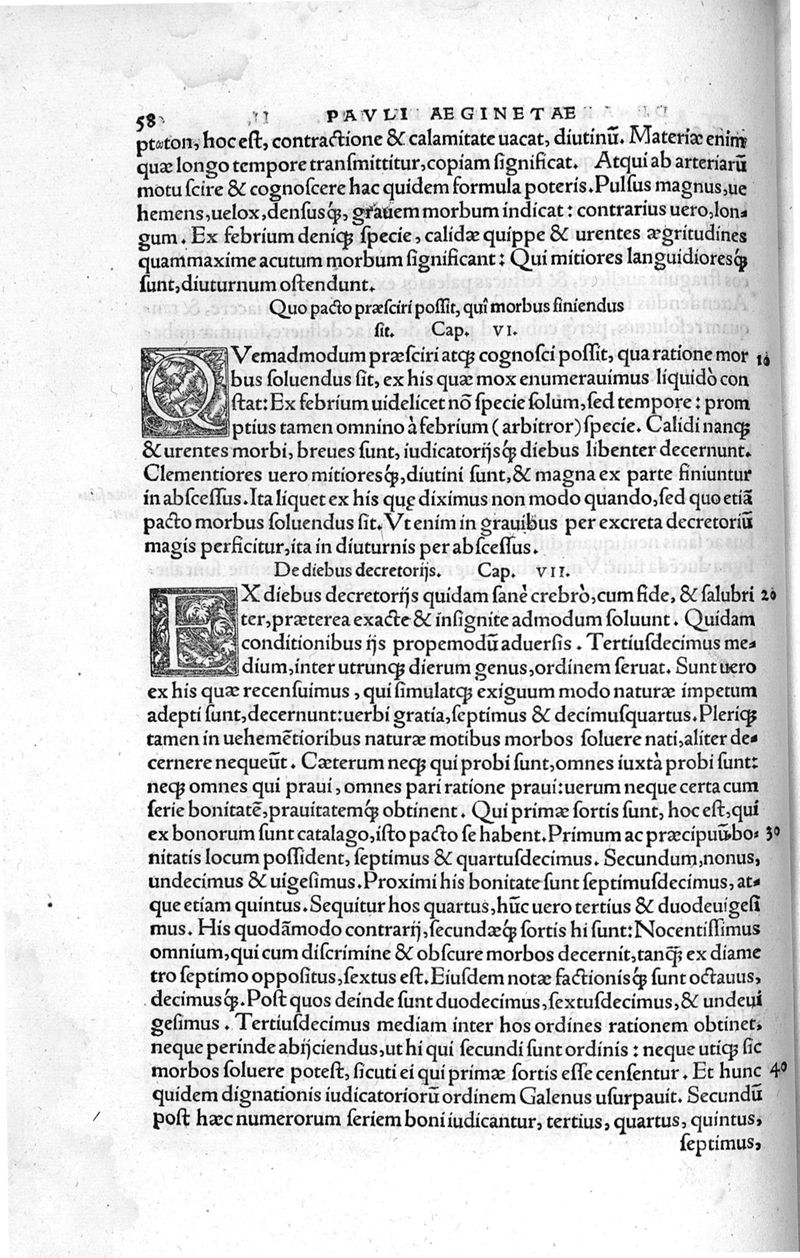 58 PAVLI AEGINETAE
ptωton, hoc est, contractione & calamitate uacat, diutinũ. Materiæ enim
quæ longo tempore transmittitur, copiam significat. Atqui ab arteriarũ
motu scire & cognoscere hac quidem formula poteris. Pulsus magnus, ue
hemens, uelox, densusq́;, grauem morbum indicat: contrarius uero, lon-
gum. Ex febrium deniq; specie, calidæ quippe & urentes ægritudines
quammaxime acutum morbum significant: Qui mitiores languidioresq́;
sunt, diuturnum ostendunt.
Quo pacto præsciri possit, quî morbus finiendus
sit. Cap. VI.
QVemadmodum præsciri atq; cognosci possit, qua ratione mor 10
bus soluendus sit, ex his quæ mox enumerauimus liquidò con
stat: Ex febrium uidelicet nõ specie solum, sed tempore: prom
ptius tamen omnino à febrium (arbitror) specie. Calidi nanq;
& urentes morbi, breues sunt, iudicatorijsq́; diebus libenter decernunt.
Clementiores uero mitioresq́;, diutini sunt, & magna ex parte finiuntur
in abscessus. Ita liquet ex his quę diximus non modo quando, sed quo etiã
pacto morbus soluendus sit. Vt enim in grauibus per excreta decretoriũ
magis perficitur, ita in diuturnis per abscessus.
De diebus decretorijs. Cap. VII.
EX diebus decretorijs quidam sanè crebrò, cum fide, & salubri 20
ter, præterea exacte & insignite admodum soluunt. Quidam
conditionibus ijs propemodũ aduersis. Tertiusdecimus me-
dium, inter utrunq; dierum genus, ordinem seruat. Sunt uero
ex his quæ recensuimus, qui simulatq; exiguum modo naturæ impetum
adepti sunt, decernunt: uerbi gratia, septimus & decimusquartus. Pleriq;
tamen in uehemẽtioribus naturæ motibus morbos soluere nati, aliter de-
cernere nequeũt. Cæterum neq; qui probi sunt, omnes iuxtà probi sunt:
neq; omnes qui praui, omnes pari ratione praui: uerum neque certa cum
serie bonitatẽ, prauitatemq́; obtinent. Qui primæ sortis sunt, hoc est, qui
ex bonorum sunt catalago, isto pacto se habent. Primum ac præcipuũ bo- 30
nitatis locum possident, septimus & quartusdecimus. Secundum, nonus,
undecimus & uigesimus. Proximi his bonitate sunt septimusdecimus, at-
que etiam quintus. Sequitur hos quartus, hũc uero tertius & duodeuigesi
mus. His quodãmodo contrarij, secundæq́; sortis hi sunt: Nocentissimus
omnium, qui cum discrimine & obscure morbos decernit, tanq̃; ex diame
tro septimo oppositus, sextus est. Eiusdem notæ factionisq́; sunt octauus,
decimusq́;. Post quos deinde sunt duodecimus, sextusdecimus, & undeui
gesimus. Tertiusdecimus mediam inter hos ordines rationem obtinet,
neque perinde abijciendus, ut hi qui secundi sunt ordinis: neque utiq; sic
morbos soluere potest, sicuti ei qui primæ sortis esse censentur. Et hunc 40
quidem dignationis iudicatoriorũ ordinem Galenus usurpauit. Secundũ
post hæc numerorum seriem boni iudicantur, tertius, quartus, quintus,
septimus,